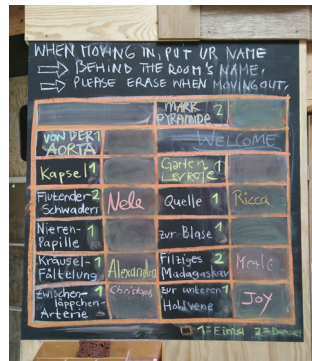 WHEN MOVING IN, PUT UR NAME
BEHIND THE ROOM'S NAME,
PLEASE ERASE WHEN MOVING OUT,
MARK 2
PYRAMIDE
VON DER 1
AORTA
WELCOME
Kapsel 1
Garten 1
Flutender- 2
Schwaden
Nele
Quelle 1
Ricca
Nieren- 1
Papille
zur Blase 1
Kräusel- 1
Fältelung
Alexandra
Filziges 2
Madagaskar
Merle
Zwischen- 1
läppchen-
Arterie
Christoph
zur unteren 1
Hohlvene
Joy
1=Einzel 2=Doppel